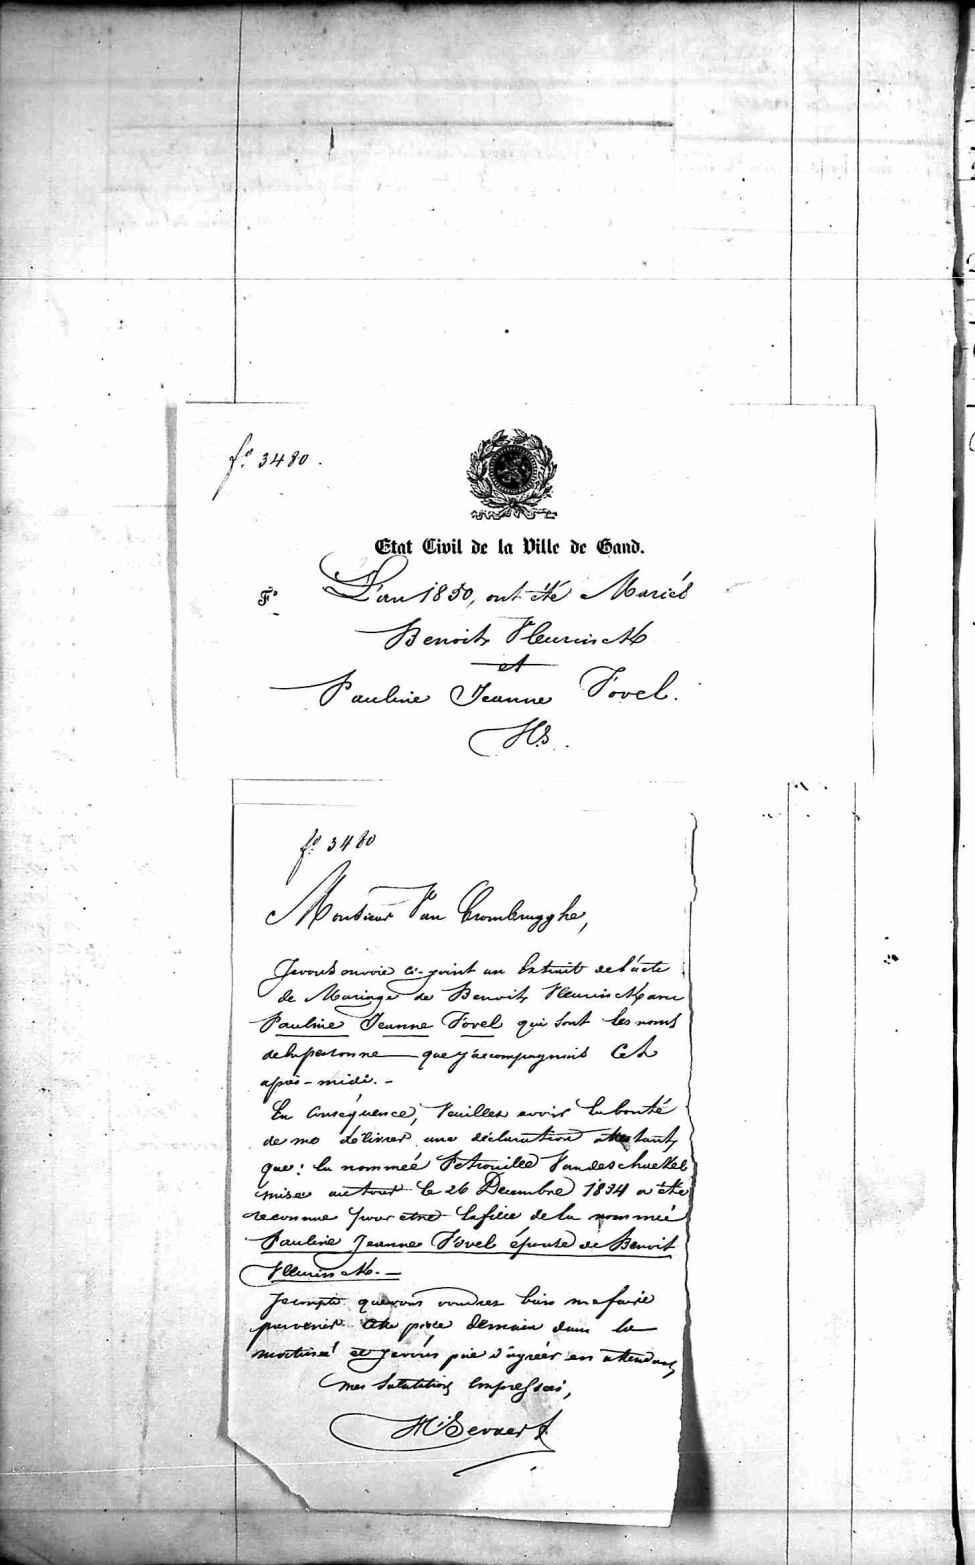 fo 3480.
Etat Civil de la Ville de Gand.
Fo L'an 1850, ont été Mariés
Benoit Vleurinck
et
Pauline Jeanne Fovel.
Hs.
fo 3480
Monsieur Van Crombrugghe,
Je vous envoie ci-joint un Extrait de l'acte
de Mariage de Benoit Vleurinck avec
Pauline Jeanne Fovel qui sont les noms
de la personne que j'accompagnais Cet
après-midi. -
En Conséquence, Veuillez avoir la bonté
de me délivrer une déclaration attestant,
que: la nommée Pétronille Vandeschuekel
mise au tour le 26 Decembre 1834 a été
reconnue pour etre la fille de la nommée
Pauline Jeanne Fovel épouse de Benoit
Vleurinck. -
Je compte que vous voudrez bien me faire
parvenir cette pièce demain dans la
matinée et je vous prie d'agréer en attendant,
mes Salutations Empressées,